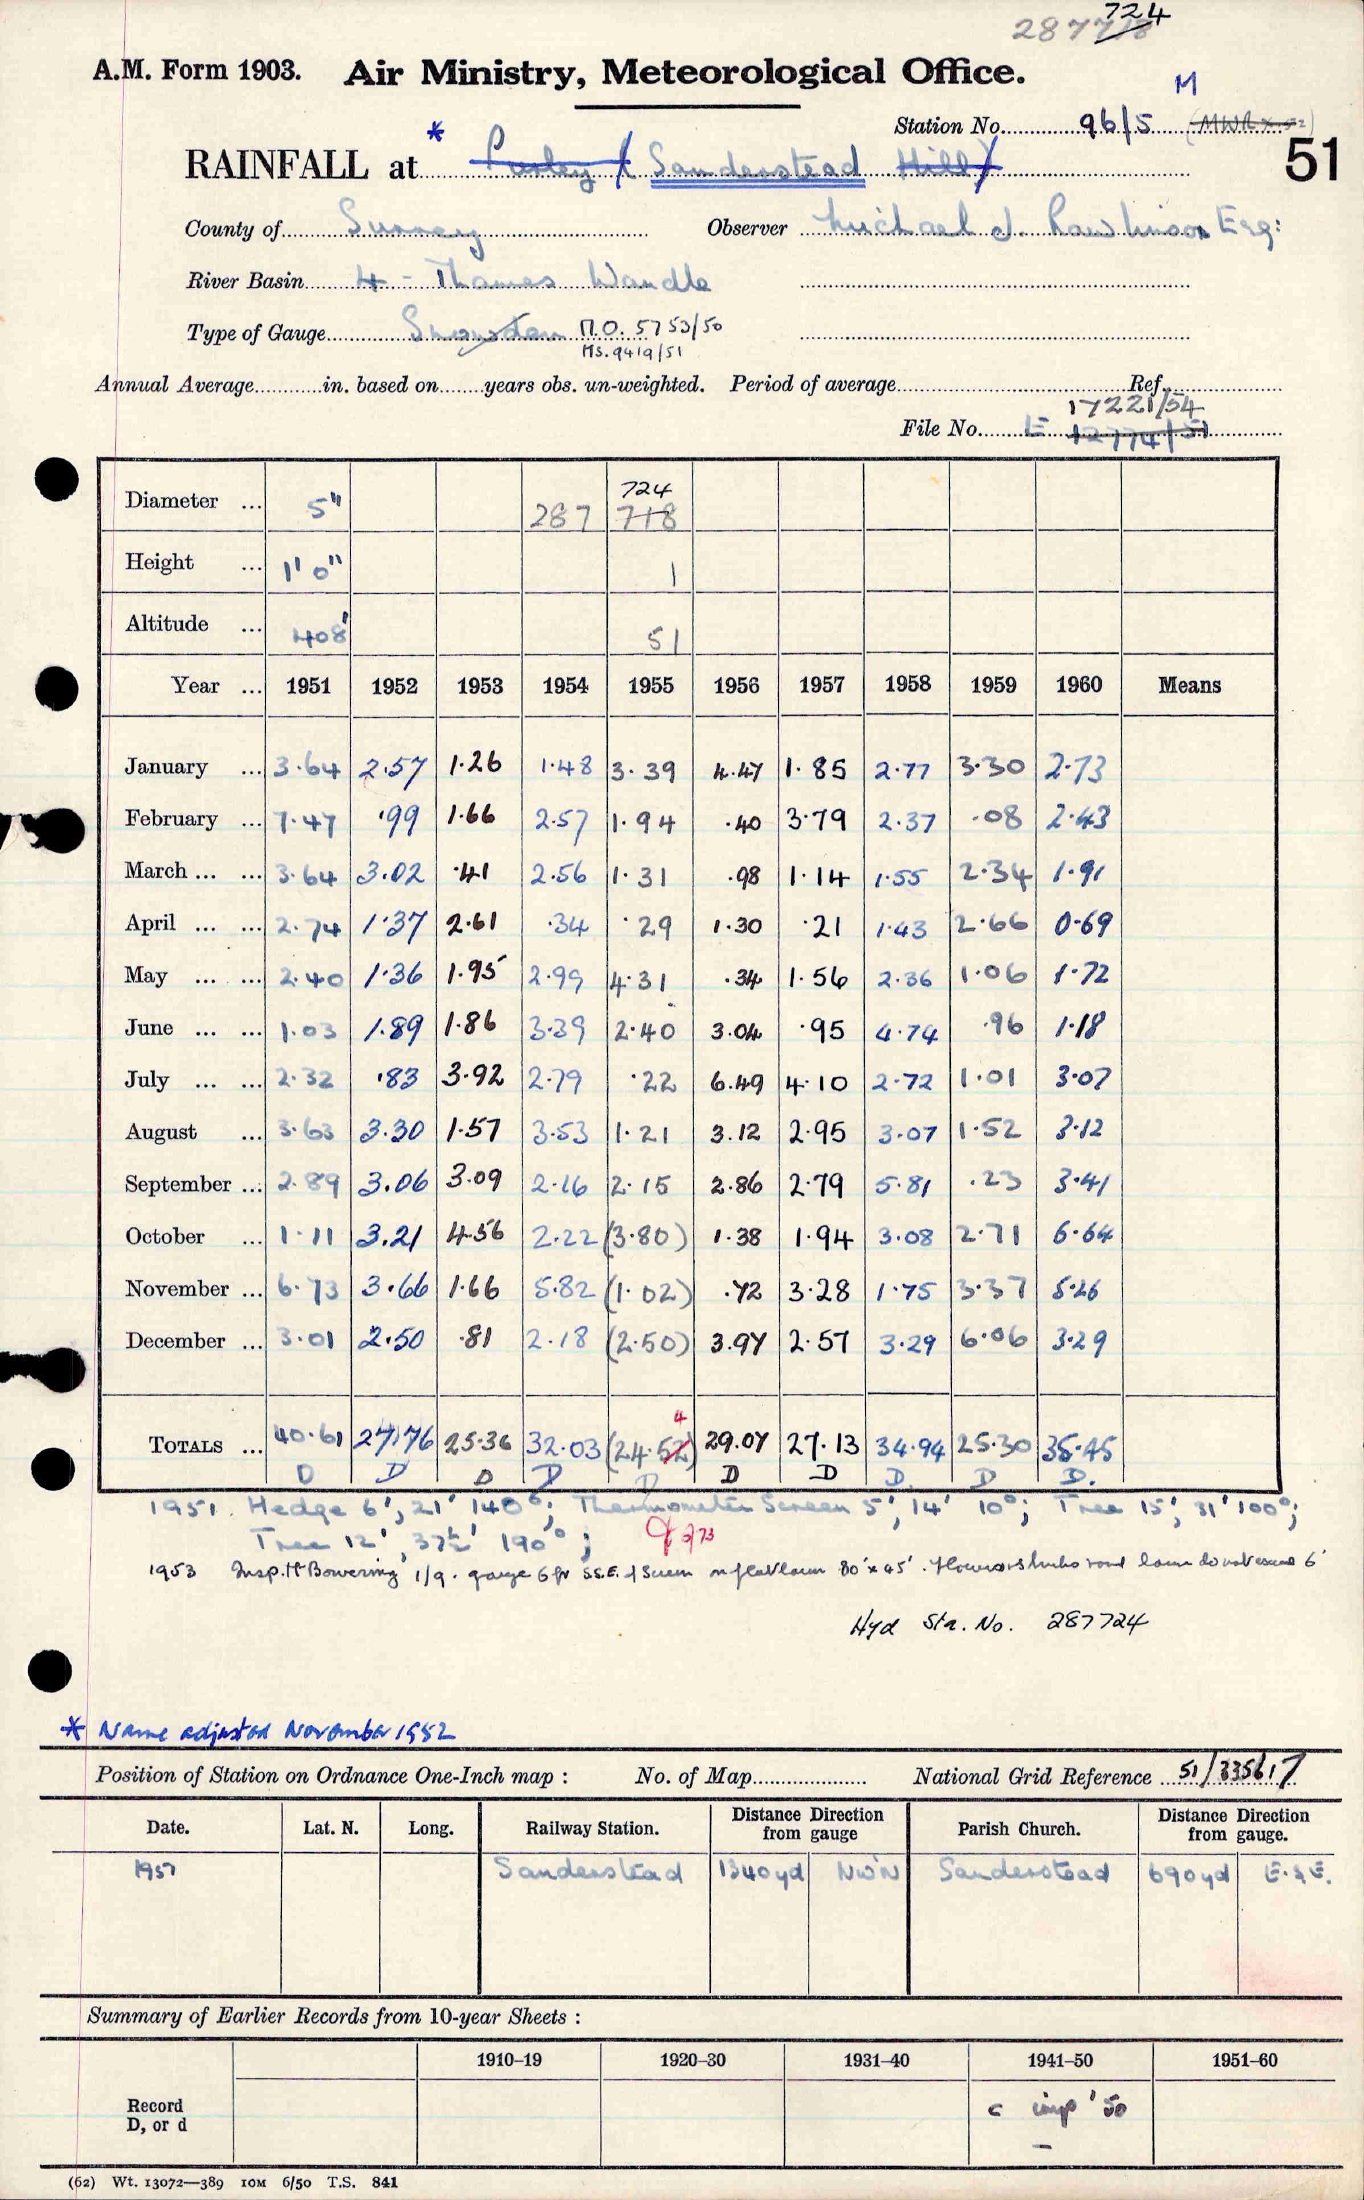 724
287718
A.M. Form 1903. Air Ministry, Meteorological Office.
M
Station No. 96/5 (MWR x 52)
51
* RAINFALL at Purley (Sanderstead Hill)
County of Surrey Observer Michael J. Rawlinson Esq:
River Basin 4 - Thames Wandle
Type of Gauge Snowdon M.O. 5753/50
MS. 9419/51
Annual Average in. based on years obs. un-weighted. Period of average Ref.
17221/54
File No. E 12774/51
724
Diameter ... 5" 287 718
Height ... 1' 0" 1
Altitude ... 408' 51
Year ... 1951 1952 1953 1954 1955 1956 1957 1958 1959 1960 Means
January ... 3.64 2.57 1.26 1.48 3.39 4.47 1.85 2.77 3.30 2.73
February ... 7.47 .99 1.66 2.57 1.94 .40 3.79 2.37 .08 2.43
March ... ... 3.64 3.02 .41 2.56 1.31 .98 1.14 1.55 2.34 1.91
April ... ... 2.74 1.37 2.61 .34 .29 1.30 .21 1.43 2.66 0.69
May ... ... 2.40 1.36 1.95 2.99 4.31 .34 1.56 2.36 1.06 1.72
June ... ... 1.03 1.89 1.86 3.39 2.40 3.04 .95 4.74 .96 1.18
July ... ... 2.32 .83 3.92 2.79 .22 6.49 4.10 2.72 1.01 3.07
August ... 3.63 3.30 1.57 3.53 1.21 3.12 2.95 3.07 1.52 3.12
September ... 2.89 3.06 3.09 2.16 2.15 2.86 2.79 5.81 .23 3.41
October ... 1.11 3.21 4.56 2.22 (3.80) 1.38 1.94 3.08 2.71 6.64
November ... 6.73 3.66 1.66 5.82 (1.02) .72 3.28 1.75 3.37 5.26
December ... 3.01 2.50 .81 2.18 (2.50) 3.97 2.57 3.29 6.06 3.29
4
TOTALS ... 40.61 27.76 25.36 32.03 (24.52) 29.07 27.13 34.94 25.30 35.45
D D D D D D D D D D.
1951. Hedge 6', 21' 140°; Thermometer Screen 5', 14' 10°; Tree 15', 31' 100°;
Tree 12', 37½' 190°;
1953 Insp. H Bowering 1/9. gauge 6 ft S.S.E. of screen on flat lawn 80' x 45'. Flowers & shrubs round lawn do not exceed 6'
Hyd Sta. No. 287724
* Name adjusted November 1952
Position of Station on Ordnance One-Inch map : No. of Map National Grid Reference 51/335617
Date. Lat. N. Long. Railway Station. Distance Direction from gauge Parish Church. Distance Direction from gauge.
1951 Sanderstead 1340yd NW'N Sanderstead 690yd E.S.E.
Summary of Earlier Records from 10-year Sheets :
1910–19 1920–30 1931–40 1941–50 1951–60
Record
D, or d
c imp '50
–
(62) Wt. 13072—389 10M 6/50 T.S. 841